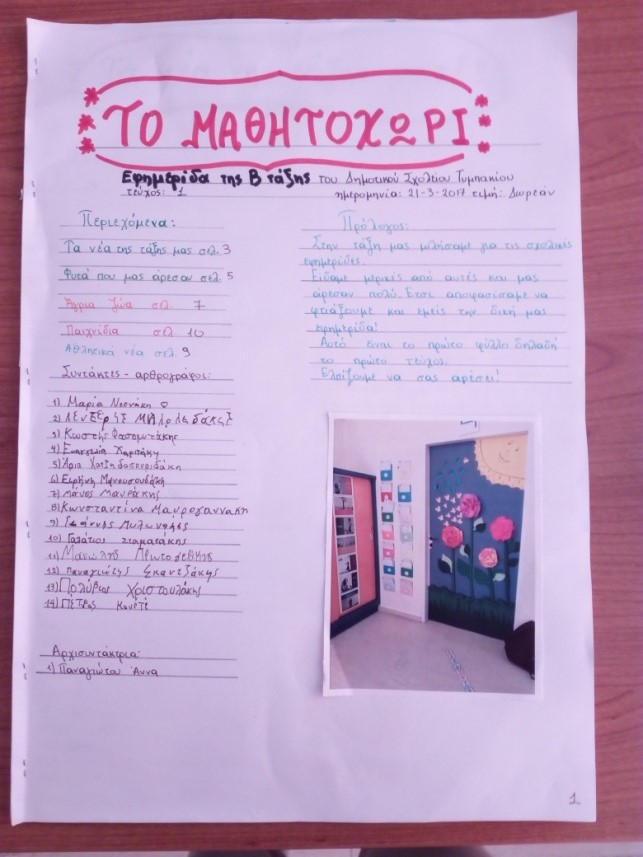 ΤΟ ΜΑΘΗΤΟΧΩΡΙ
Εφημερίδα της Β τάξης του Δημοτικού Σχολείου Τυμπακίου
τεύχος: 1 ημερομηνία: 21-3-2017 τιμή: Δωρεάν
Περιεχόμενα:
Τα νέα της τάξης μας σελ. 3
Φυτά που μας άρεσαν σελ. 5
Άγρια ζώα σελ. 7
Παιχνίδια σελ 10
Αθλητικά νέα σελ. 9
Συντάκτες - αρθρογράφοι:
1) Μαρία
2)
3) Κωστής
4) Ευαγγελία
5) Χατζηδασκαλάκη
6) Ειρήνη
7) Μάνος Μαυράκης
8) Κωνσταντίνα Μαυρογιαννάκη
9) Μυλωνάκης
10) Σταματάκης
11) Μανώλης Πρωτο
12) Παναγιώτης Σκαντζάκης
13) Πολύβιος Χριστουλάκης
14) ΠΕΤΡΟΣ
Αρχισυντάκτρια:
1) Παναγιώτου Άννα
Πρόλογος:
Στην τάξη μας μιλήσαμε για τις σχολικές
εφημερίδες.
Είδαμε μερικές από αυτές και μας
άρεσαν πολύ. Έτσι αποφασίσαμε να
φτιάξουμε και εμείς την δική μας
εφημερίδα!
Αυτό είναι το πρώτο φύλλο δηλαδή
το πρώτο τεύχος.
Ελπίζουμε να σας αρέσει!
1